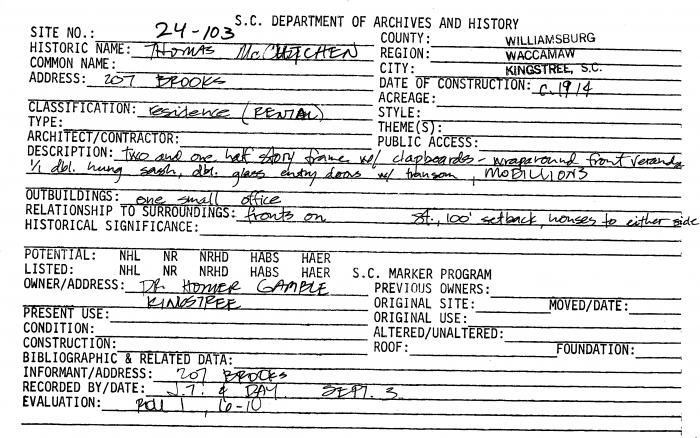 S.C. DEPARTMENT OF ARCHIVES AND HISTORY
SITE NO.: 24-103
COUNTY: WILLIAMSBURG
HISTORIC NAME: THOMAS McCUTCHEN
REGION: WACCAMAW
COMMON NAME:
CITY: KINGSTREE, S.C.
ADDRESS: 207 BROOKS
DATE OF CONSTRUCTION: c.1914
ACREAGE:
CLASSIFICATION: residence (RENTAL)
STYLE:
TYPE:
THEME(S):
ARCHITECT/CONTRACTOR:
PUBLIC ACCESS:
DESCRIPTION: two and one half story frame w/ clapboards - wraparound front veranda
1/1 dbl. hung sash, dbl. glass entry doors w/ transom, MODILLIONS
OUTBUILDINGS: one small office
RELATIONSHIP TO SURROUNDINGS: fronts on st., 100' setback, houses to either side
HISTORICAL SIGNIFICANCE:
POTENTIAL: NHL NR NRHD HABS HAER
LISTED: NHL NR NRHD HABS HAER S.C. MARKER PROGRAM
OWNER/ADDRESS: DR. HOMER GAMBLE
PREVIOUS OWNERS:
KINGSTREE
ORIGINAL SITE: MOVED/DATE:
PRESENT USE:
ORIGINAL USE:
CONDITION:
ALTERED/UNALTERED:
CONSTRUCTION:
ROOF: FOUNDATION:
BIBLIOGRAPHIC & RELATED DATA:
INFORMANT/ADDRESS: 207 BROOKS
RECORDED BY/DATE: J.T. & DAY SEPT. 3
EVALUATION: Roll 1, 6-10